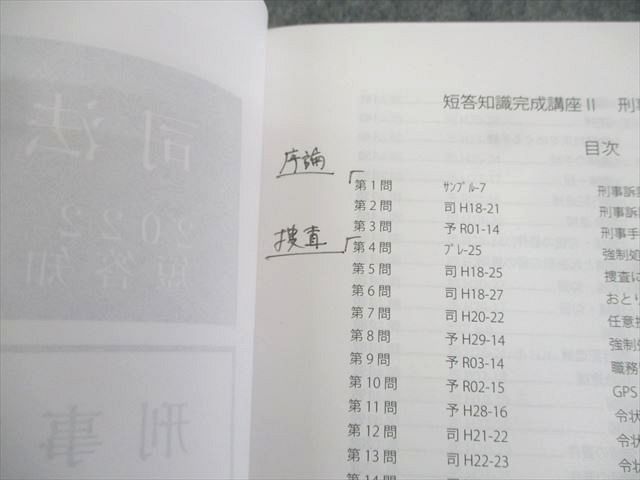 短答知識完成講座Ⅱ 刑事
目次
序論
第1問 サンプル-7 刑事訴訟
第2問 司 H18-21 刑事訴訟
第3問 予 R01-14 刑事手
捜査
第4問 プレ-25 強制処
第5問 司 H18-25 捜査に
第6問 司 H18-27 おとり
第7問 司 H20-22 任意捜
第8問 予 H29-14 強制処
第9問 予 R03-14 職務
第10問 予 R02-15 GPS
第11問 予 H28-16 令状
第12問 司 H21-22 令状
第13問 司 H22-23 令状
第14問
司法
2022
短答知
刑事